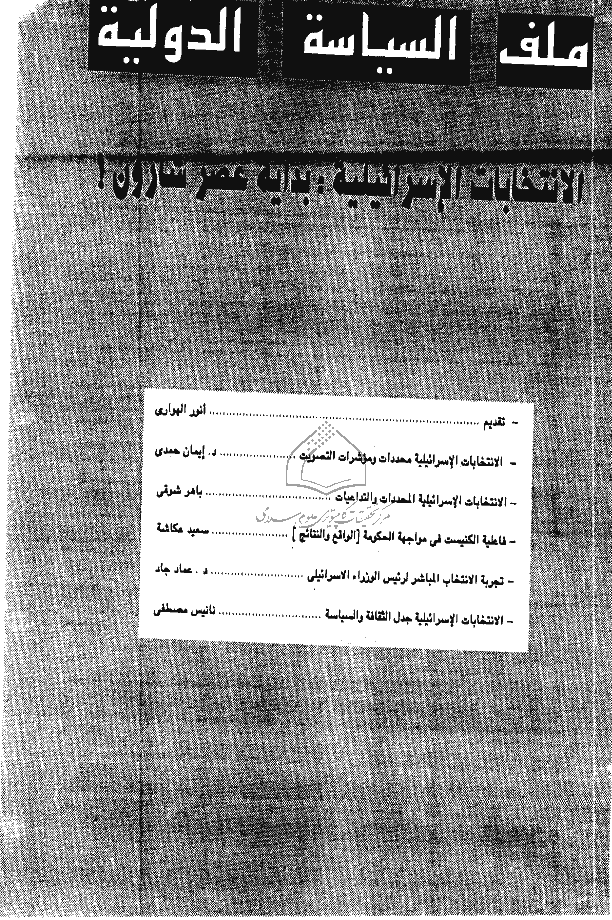 ملف السياسة الدولية
الانتخابات الإسرائيلية : بداية عصر شارون !
- تقديم ........................ أنور الهوارى
- الانتخابات الإسرائيلية محددات ومؤشرات التصويت ........................ د. إيمان حمدى
- الانتخابات الإسرائيلية المحددات والتداعيات ........................ باهر شوقى
- فاعلية الكنيست فى مواجهة الحكومة [الواقع والنتائج] ........................ سعيد عكاشة
- تجربة الانتخاب المباشر لرئيس الوزراء الاسرائيلى ........................ د . عماد جاد
- الانتخابات الإسرائيلية جدل الثقافة والسياسة ........................ نانيس مصطفى
مرکز تحقیقات کامپیوتری علوم اسلامی